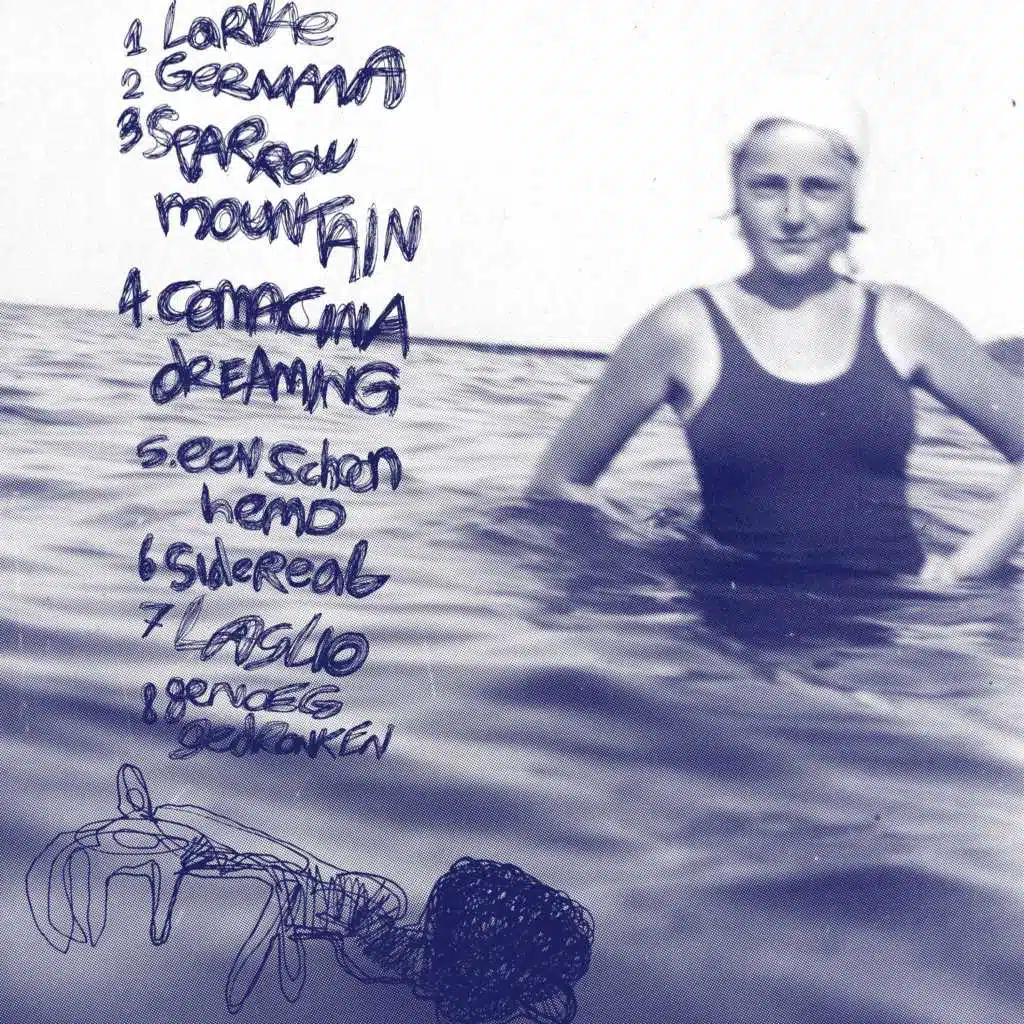 1 LARVAE
2 GERMANA
3 SPARROW
MOUNTAIN
4. COMACINA
DREAMING
5. een schoon
hemd
6 Sidereal
7 LAGLIO
8 genoEG
gedronkEN